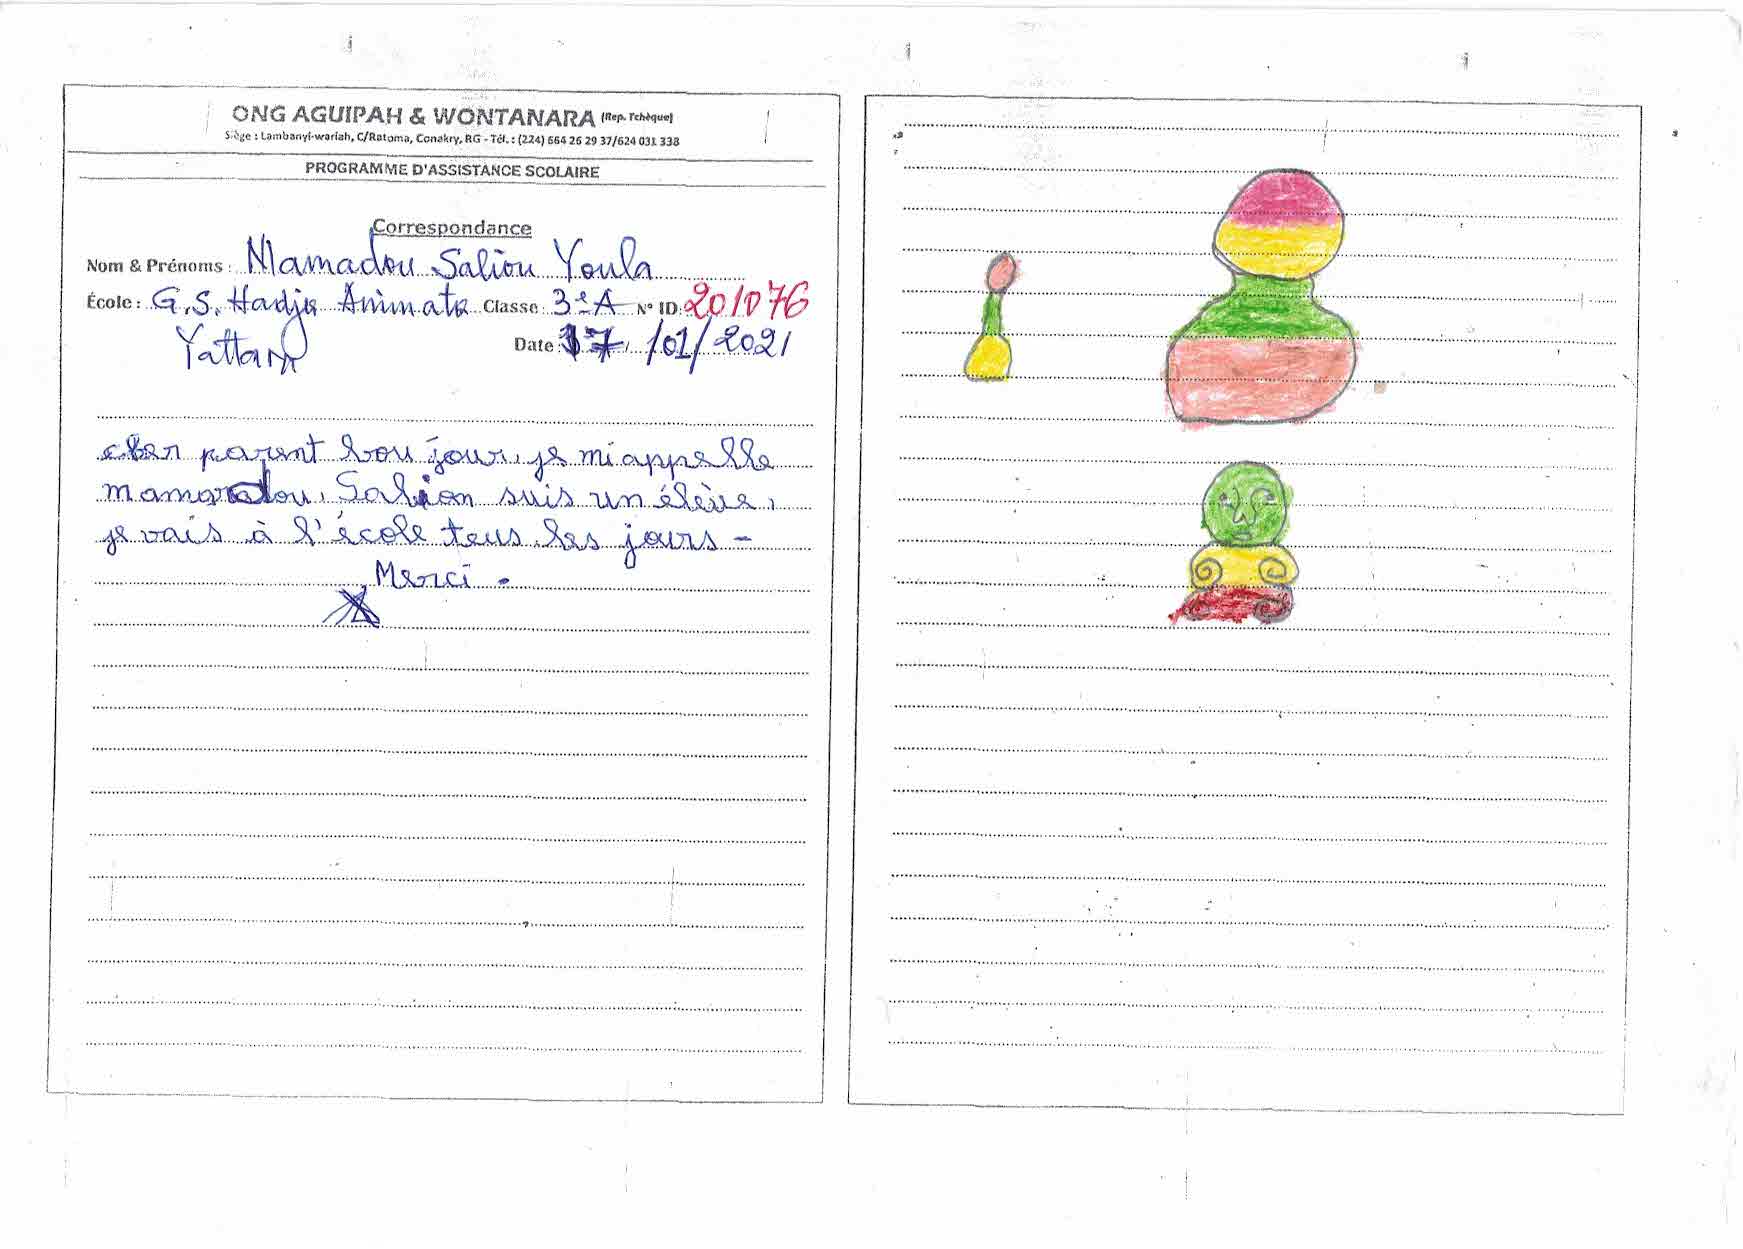 ONG AGUIPAH & WONTANARA (Rep. Tchèque)
Siège : Lambanyi-wariah, C/Ratoma, Conakry, RG - Tél. : (224) 664 26 29 37/624 031 338
PROGRAMME D'ASSISTANCE SCOLAIRE
Correspondance
Nom & Prénoms : Mamadou Saliou Youla
École : G.S. Hadja Animata Classe : 3e A N° ID: 201076
Yattara Date : 17 /01/2021
cher parent bou jour, je mi appelle
mamadou, Saliou suis un élève,
je vais à l'école tous les jours -
Merci .